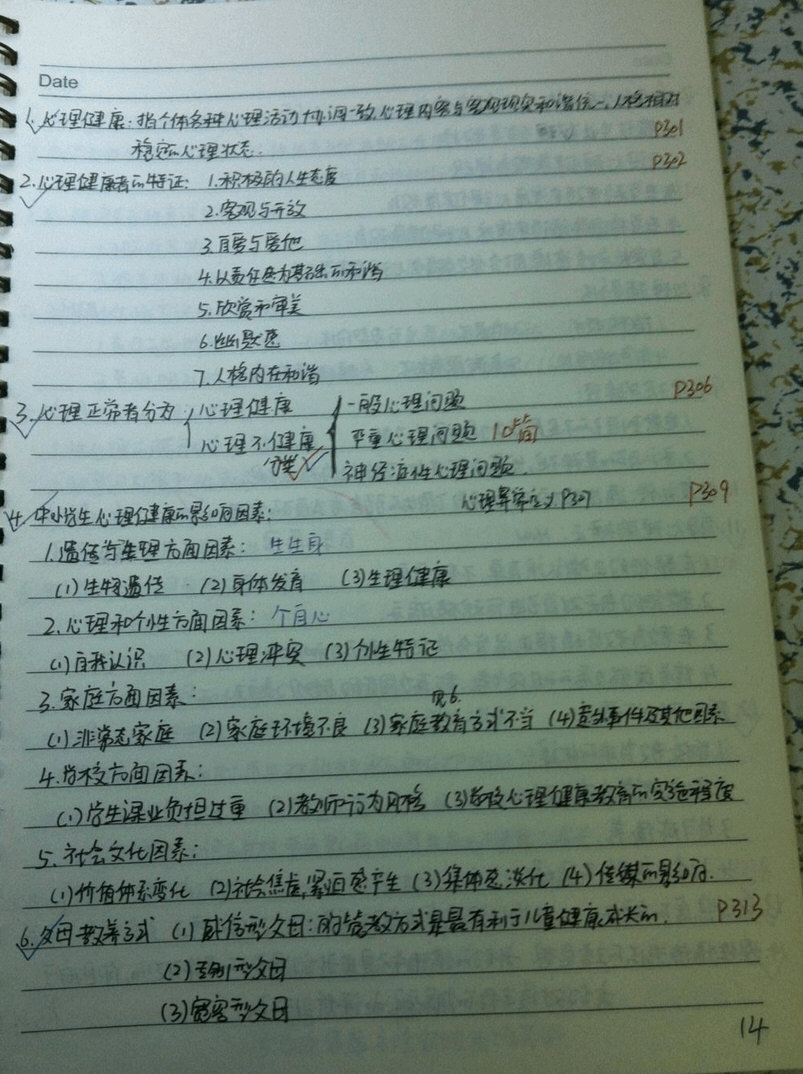 Date
1.心理健康：指个体各种心理活动协调一致,心理内容与客观现实和谐统一,人格相对
稳定的心理状态. P301
2.心理健康者的特征: 1.积极的人生态度 P302
2.客观与开放
3.自爱与爱他
4.以责任感为基础的和谐
5.欣赏和审美
6.幽默感
7.人格内在和谐
3.心理正常者分为 心理健康 一般心理问题 P306
心理不健康 严重心理问题 10点前
分类 神经症性心理问题.
4.中小学生心理健康的影响因素: 心理异常定义P307 P309
1.遗传与生理方面因素: 生生身
(1)生物遗传 (2)身体发育 (3)生理健康
2.心理和个性方面因素: 个自心
(1)自我认识 (2)心理冲突 (3)个性特征
3.家庭方面因素: 见6.
(1)非常态家庭 (2)家庭环境不良 (3)家庭教育方式不当 (4)意外事件及其他因素
4.学校方面因素:
(1)学生课业负担过重 (2)教师行为风格 (3)学校心理健康教育的实施程度
5.社会文化因素:
(1)价值体系变化 (2)社会焦虑,紧迫感产生 (3)集体感淡化 (4)传媒的影响.
6.父母教养方式 (1)威信型父母:的管教方式是最有利于儿童健康成长的. P313
(2)专制型父母
(3)宽容型父母
14